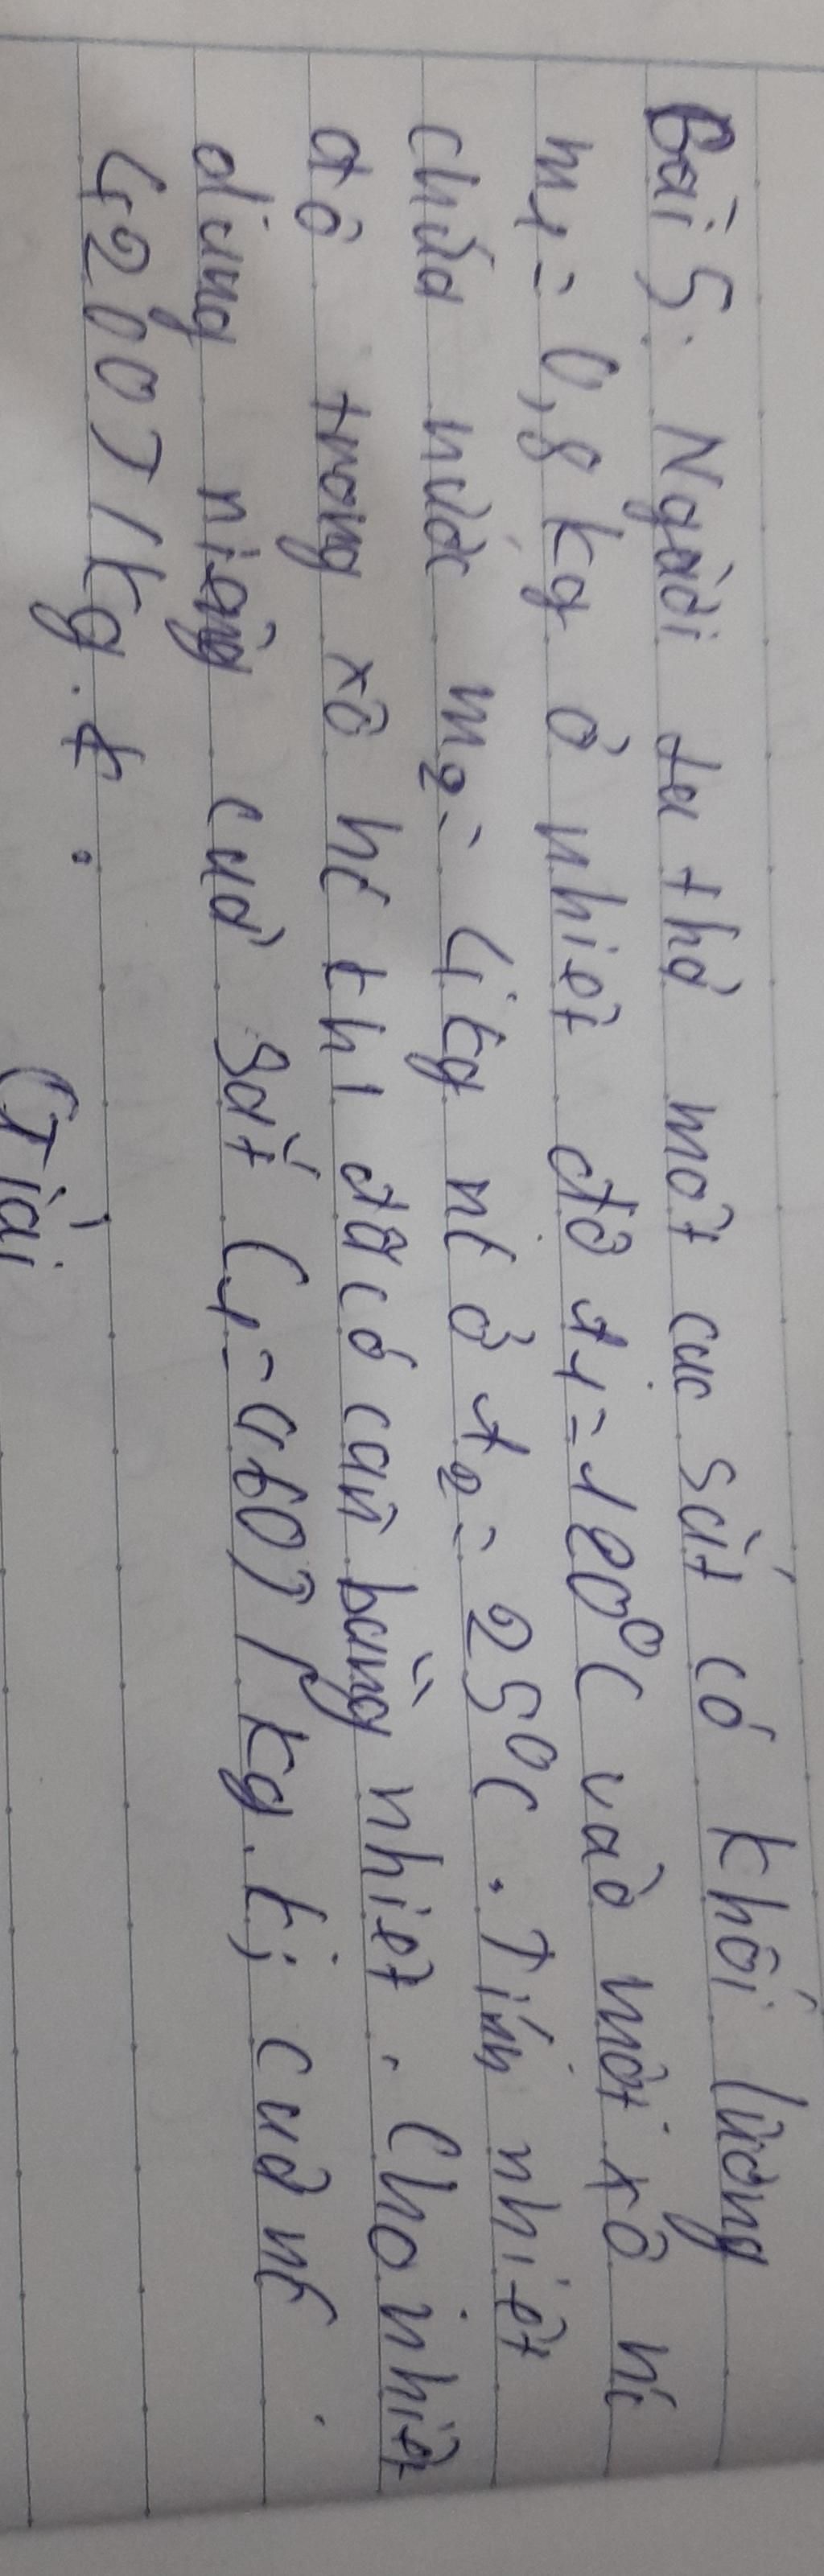 Bài 5. Người ta thả một cục sắt có khối lượng
m1 = 0,8 kg ở nhiệt độ t1 = 120°C vào một xô nc
chứa nước m2 = 4 kg nc ở t2 = 25°C. Tính nhiệt
độ trong xô nc khi đã có cân bằng nhiệt. Cho nhiệt
dung riêng của sắt C1 = 460J/kg.k; của nc
4200J/kg.k.
Giải